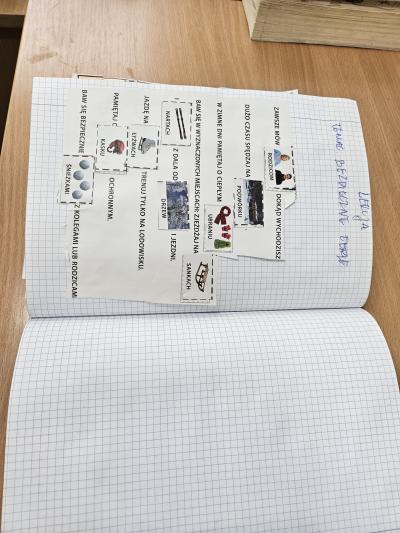 LEKCJA
TEMAT: BEZPIECZNE
ZAWSZE MÓW RODZICOM DOKĄD WYCHODZISZ
DUŻO CZASU SPĘDZAJ NA PODWÓRKU
W ZIMNE DNI PAMIĘTAJ O CIEPŁYM UBRANIU
BAW SIĘ W WYZNACZONYCH MIEJSCACH: ZJEŻDŻAJ NA SANKACH
NARTACH Z DALA OD DRZEW I JEZDNI.
JAZDĘ NA ŁYŻWACH TRENUJ TYLKO NA LODOWISKU.
PAMIĘTAJ O KASKU OCHRONNYM.
BAW SIĘ BEZPIECZNIE ŚNIEŻKAMI Z KOLEGAMI LUB RODZICAMI